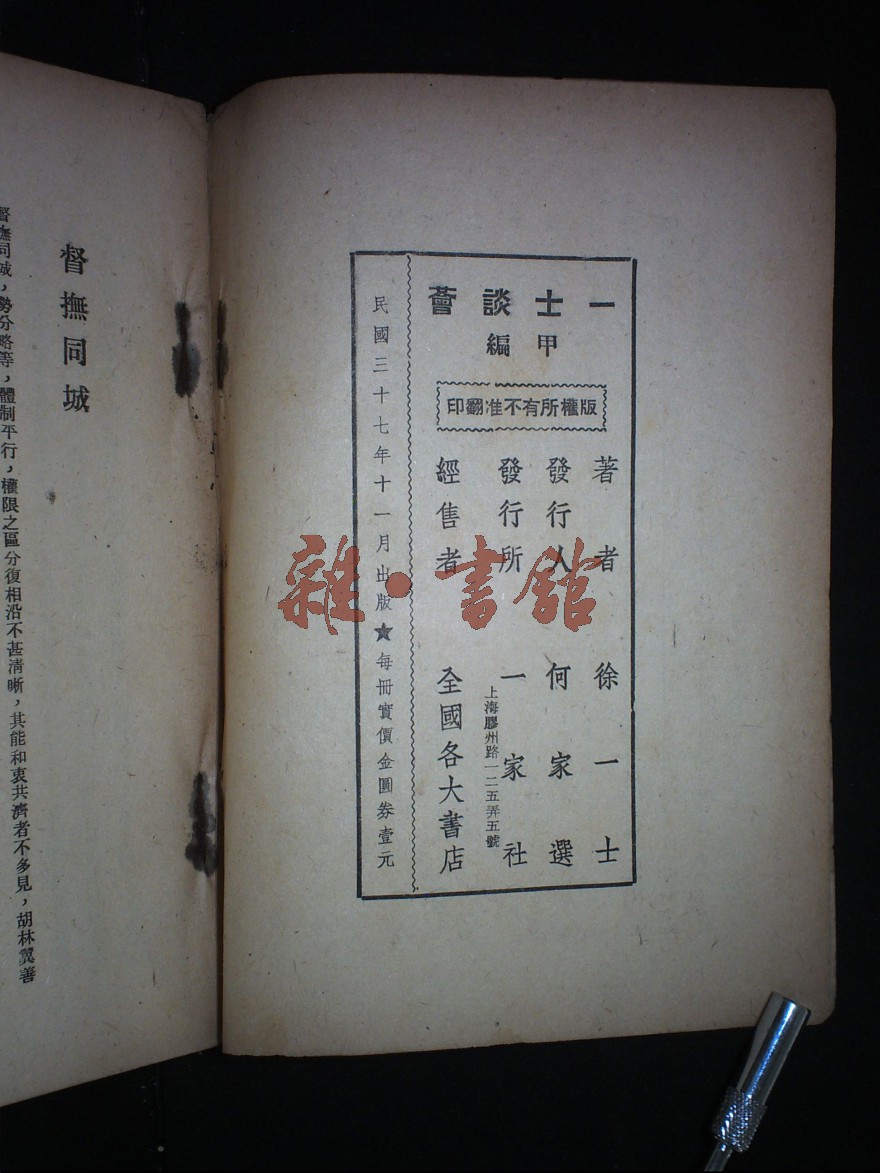 一士談薈
甲編
版權所有不准翻印
著者 徐一士
發行人 何家選
發行所 一家社
上海膠州路一二五弄五號
經售者 全國各大書店
民國三十七年十一月出版★每冊實價金圓券壹元
督撫同城
督撫同城，勢分略等，體制平行，權限之區分復相沿不甚清晰，其能和衷共濟者不多見，胡林翼善
雜·書館